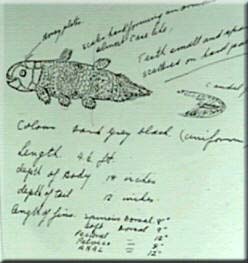 bony plate
scales hard forming an armour
almost case like,
Teeth small and
scattered on hard
Colour hard grey black (uniform)
Length. 4½ ft.
depth of Body 18 inches
depth of tail 12 inches.
length of fins. Spinous Dorsal 8"
Soft Dorsal 9"
Pectoral = 12"
Pelvic = 9"
ANAL = 12"